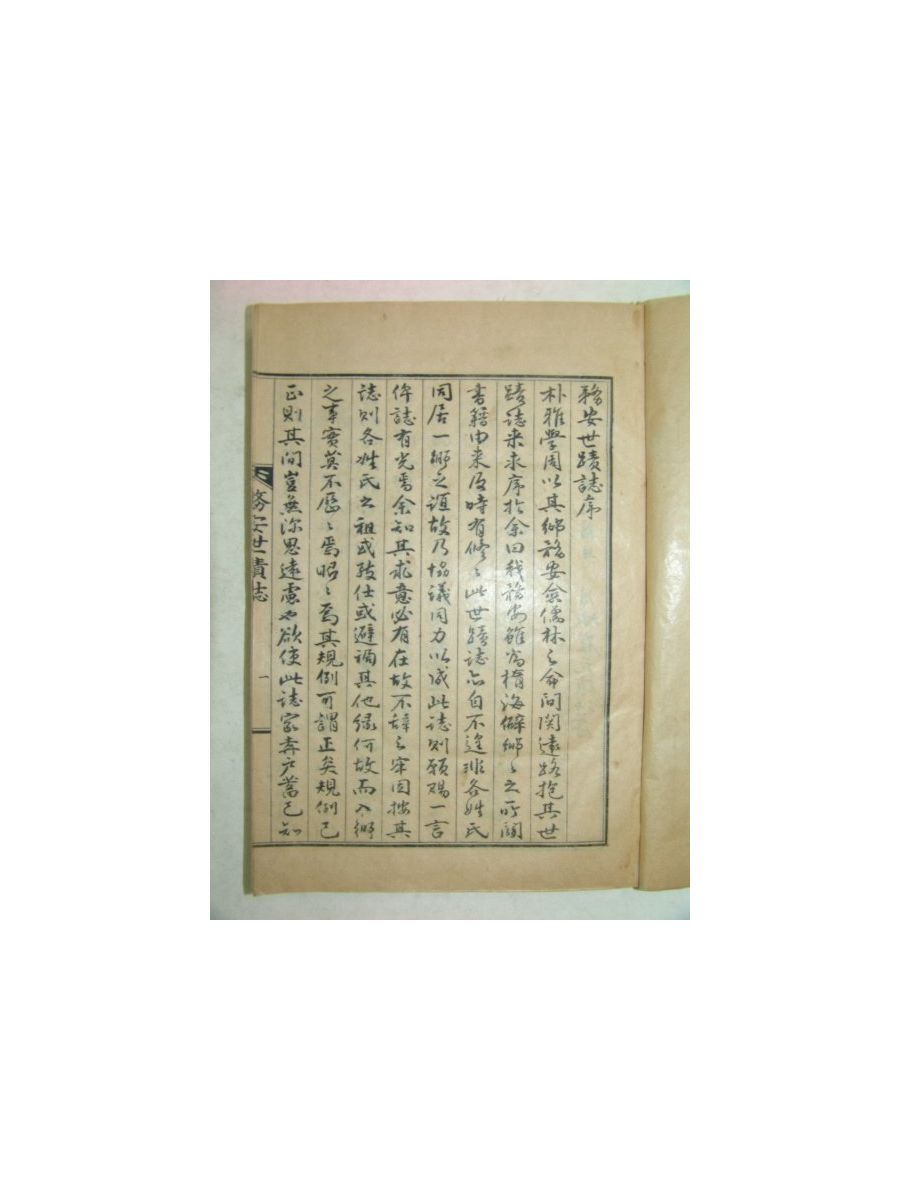 務安世蹟誌序
朴雅學周以其鄉務安僉儒林之命間関遠路抱其世
蹟誌来求序於余曰我務安雖為楷海僻鄉々之所關
書籍由来及時有修々此世蹟誌亦自不逢非各姓氏
同居一鄉之誼故乃協議同力以成此誌則願賜一言
俾誌有光焉余知其求意必有在故不辞之牢因按其
誌則各姓氏之祖或致仕或避禍其他緣何故而入鄉
之事實莫不歷々焉昭々焉其規例可謂正矣規例已
正則其间豈無深思遠慮也欲使此誌家弆戶蓄已知
務安世蹟誌
一